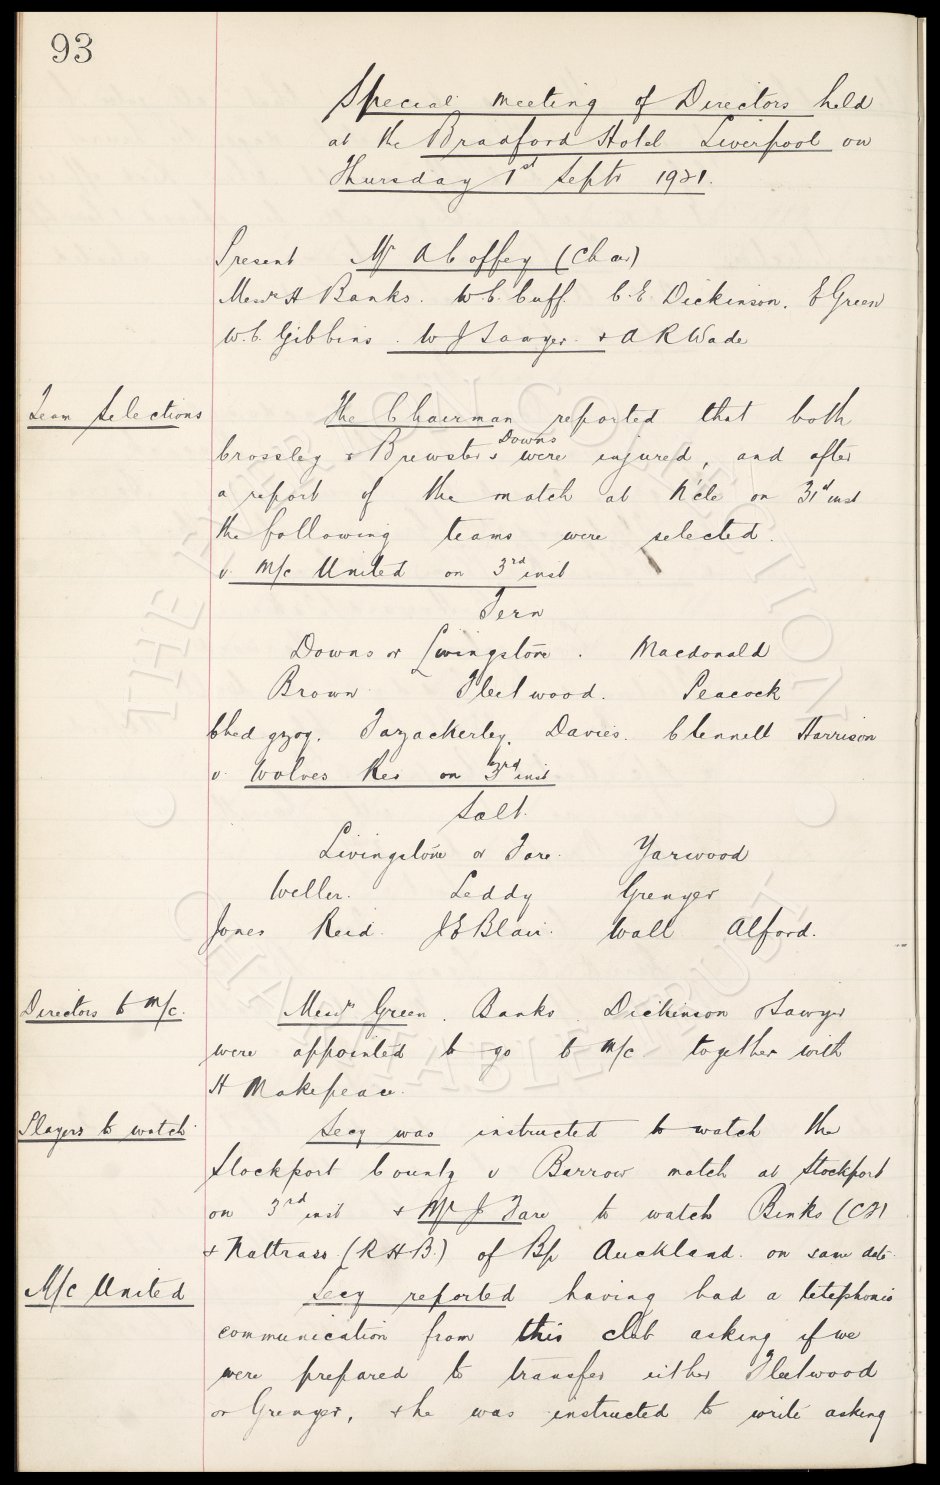 93
Special meeting of Directors held
at the Bradford Hotel Liverpool on
Thursday 1st Septr 1921.
Present Mr A Coffey (Chair)
Messrs H Banks. W.C. Cuff. C.E. Dickinson. E Green
W.C. Gibbins. W J Sawyer. & A R Wade
Team Selections
The Chairman reported that both
Crossley & Brewster & Downs were injured, and after
a report of the match at N'cle on 31st inst
the following teams were selected.
v. M/c United on 3rd inst
Fern
Downs or Livingstone. Macdonald
Brown Fleetwood. Peacock
Chedgzoy. Fazackerley. Davies. Clennell Harrison
v. Wolves Res on 3rd inst
Salt.
Livingstone or Fare. Yarwood
Weller. Leddy Grenyer
Jones Reid. J E Blair. Wall Alford.
Directors to M/c.
Messrs Green. Banks. Dickinson & Sawyer
were appointed to go to M/c together with
H Makepeace.
Players to watch
Secy was instructed to watch the
Stockport County v Barrow match at Stockport
on 3rd inst & Mr J. Fare to watch Binks (CF)
& Nattrass (R H B.) of Bp Auckland. on same date
M/c United
Secy reported having had a telephonic
communication from this club asking if we
were prepared to transfer either Fleetwood
or Grenyer, & he was instructed to write asking
THE EVERTON COLLECTION
CHARITABLE TRUST